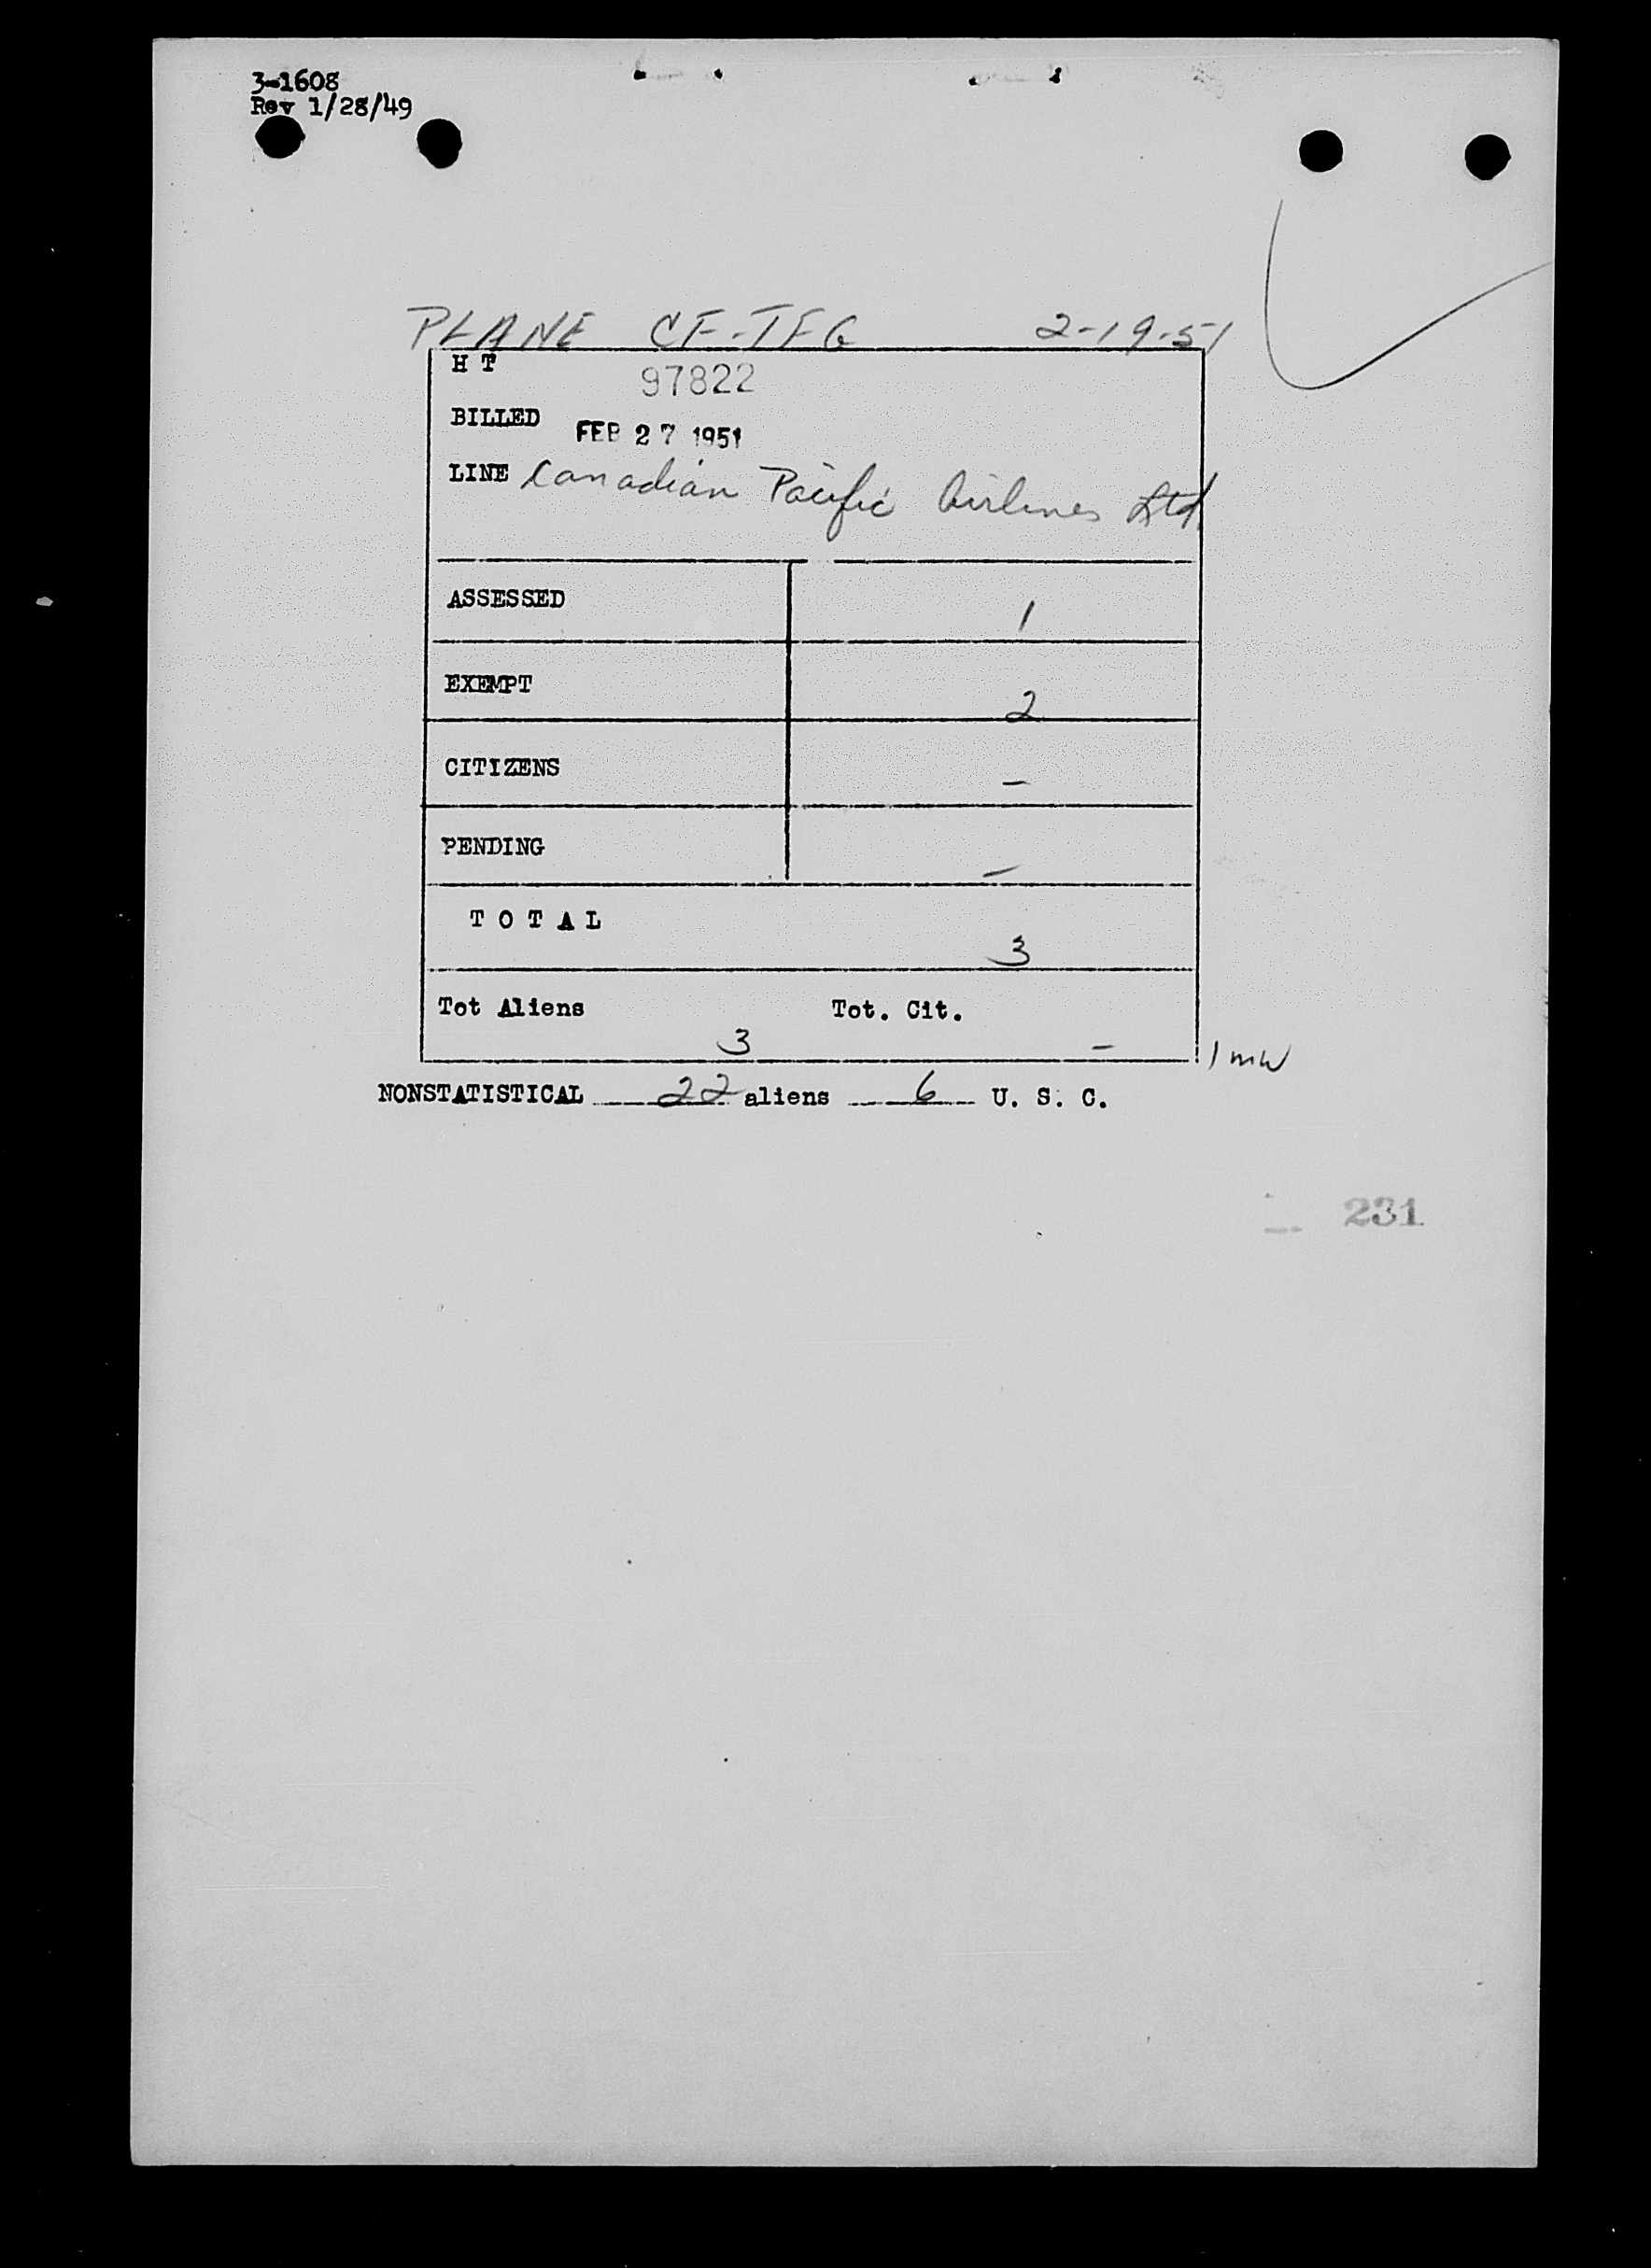 3-1608
Rev 1/28/49
PLANE CF-TFG 2-19-51
H T 97822
BILLED FEB 27 1951
LINE Canadian Pacific Airlines Ltd
ASSESSED 1
EXEMPT 2
CITIZENS -
PENDING -
T O T A L 3
Tot Aliens 3 Tot. Cit. -
1 mw
NONSTATISTICAL 22 aliens 6 U. S. C.
231